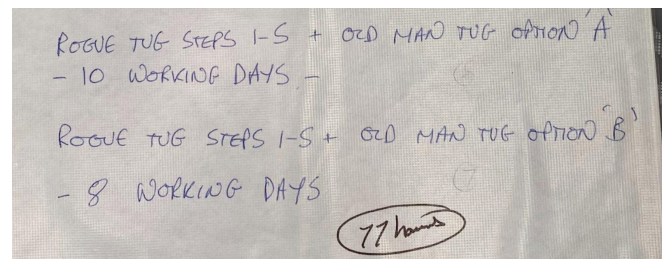 ROGUE TUG STEPS 1-5 + OLD MAN TUG OPTION 'A'
- 10 WORKING DAYS -
ROGUE TUG STEPS 1-5 + OLD MAN TUG OPTION 'B'
- 8 WORKING DAYS
77 hours